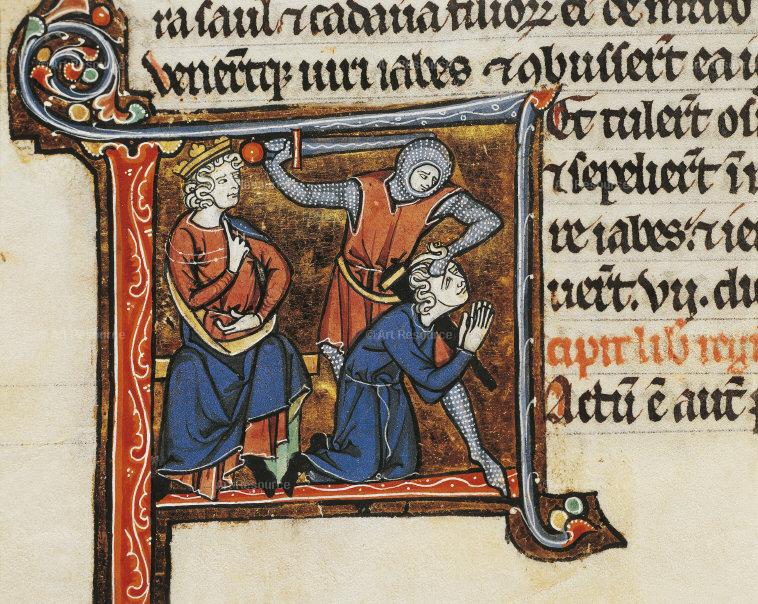 ra saul ⁊ cadaua filioꝝ ei de muro
vener̄tqꝫ uiri iabes ⁊ 9busser̄t ea i
Et tuler̄t os
⁊ sepelier̄t ī
re iabes: ⁊ ie
uer̄t. vij. di
cipit lib̄ reg
Actū ē aut̄
© Art Resource
© Art Resource
© Art Resource
© Art Resource